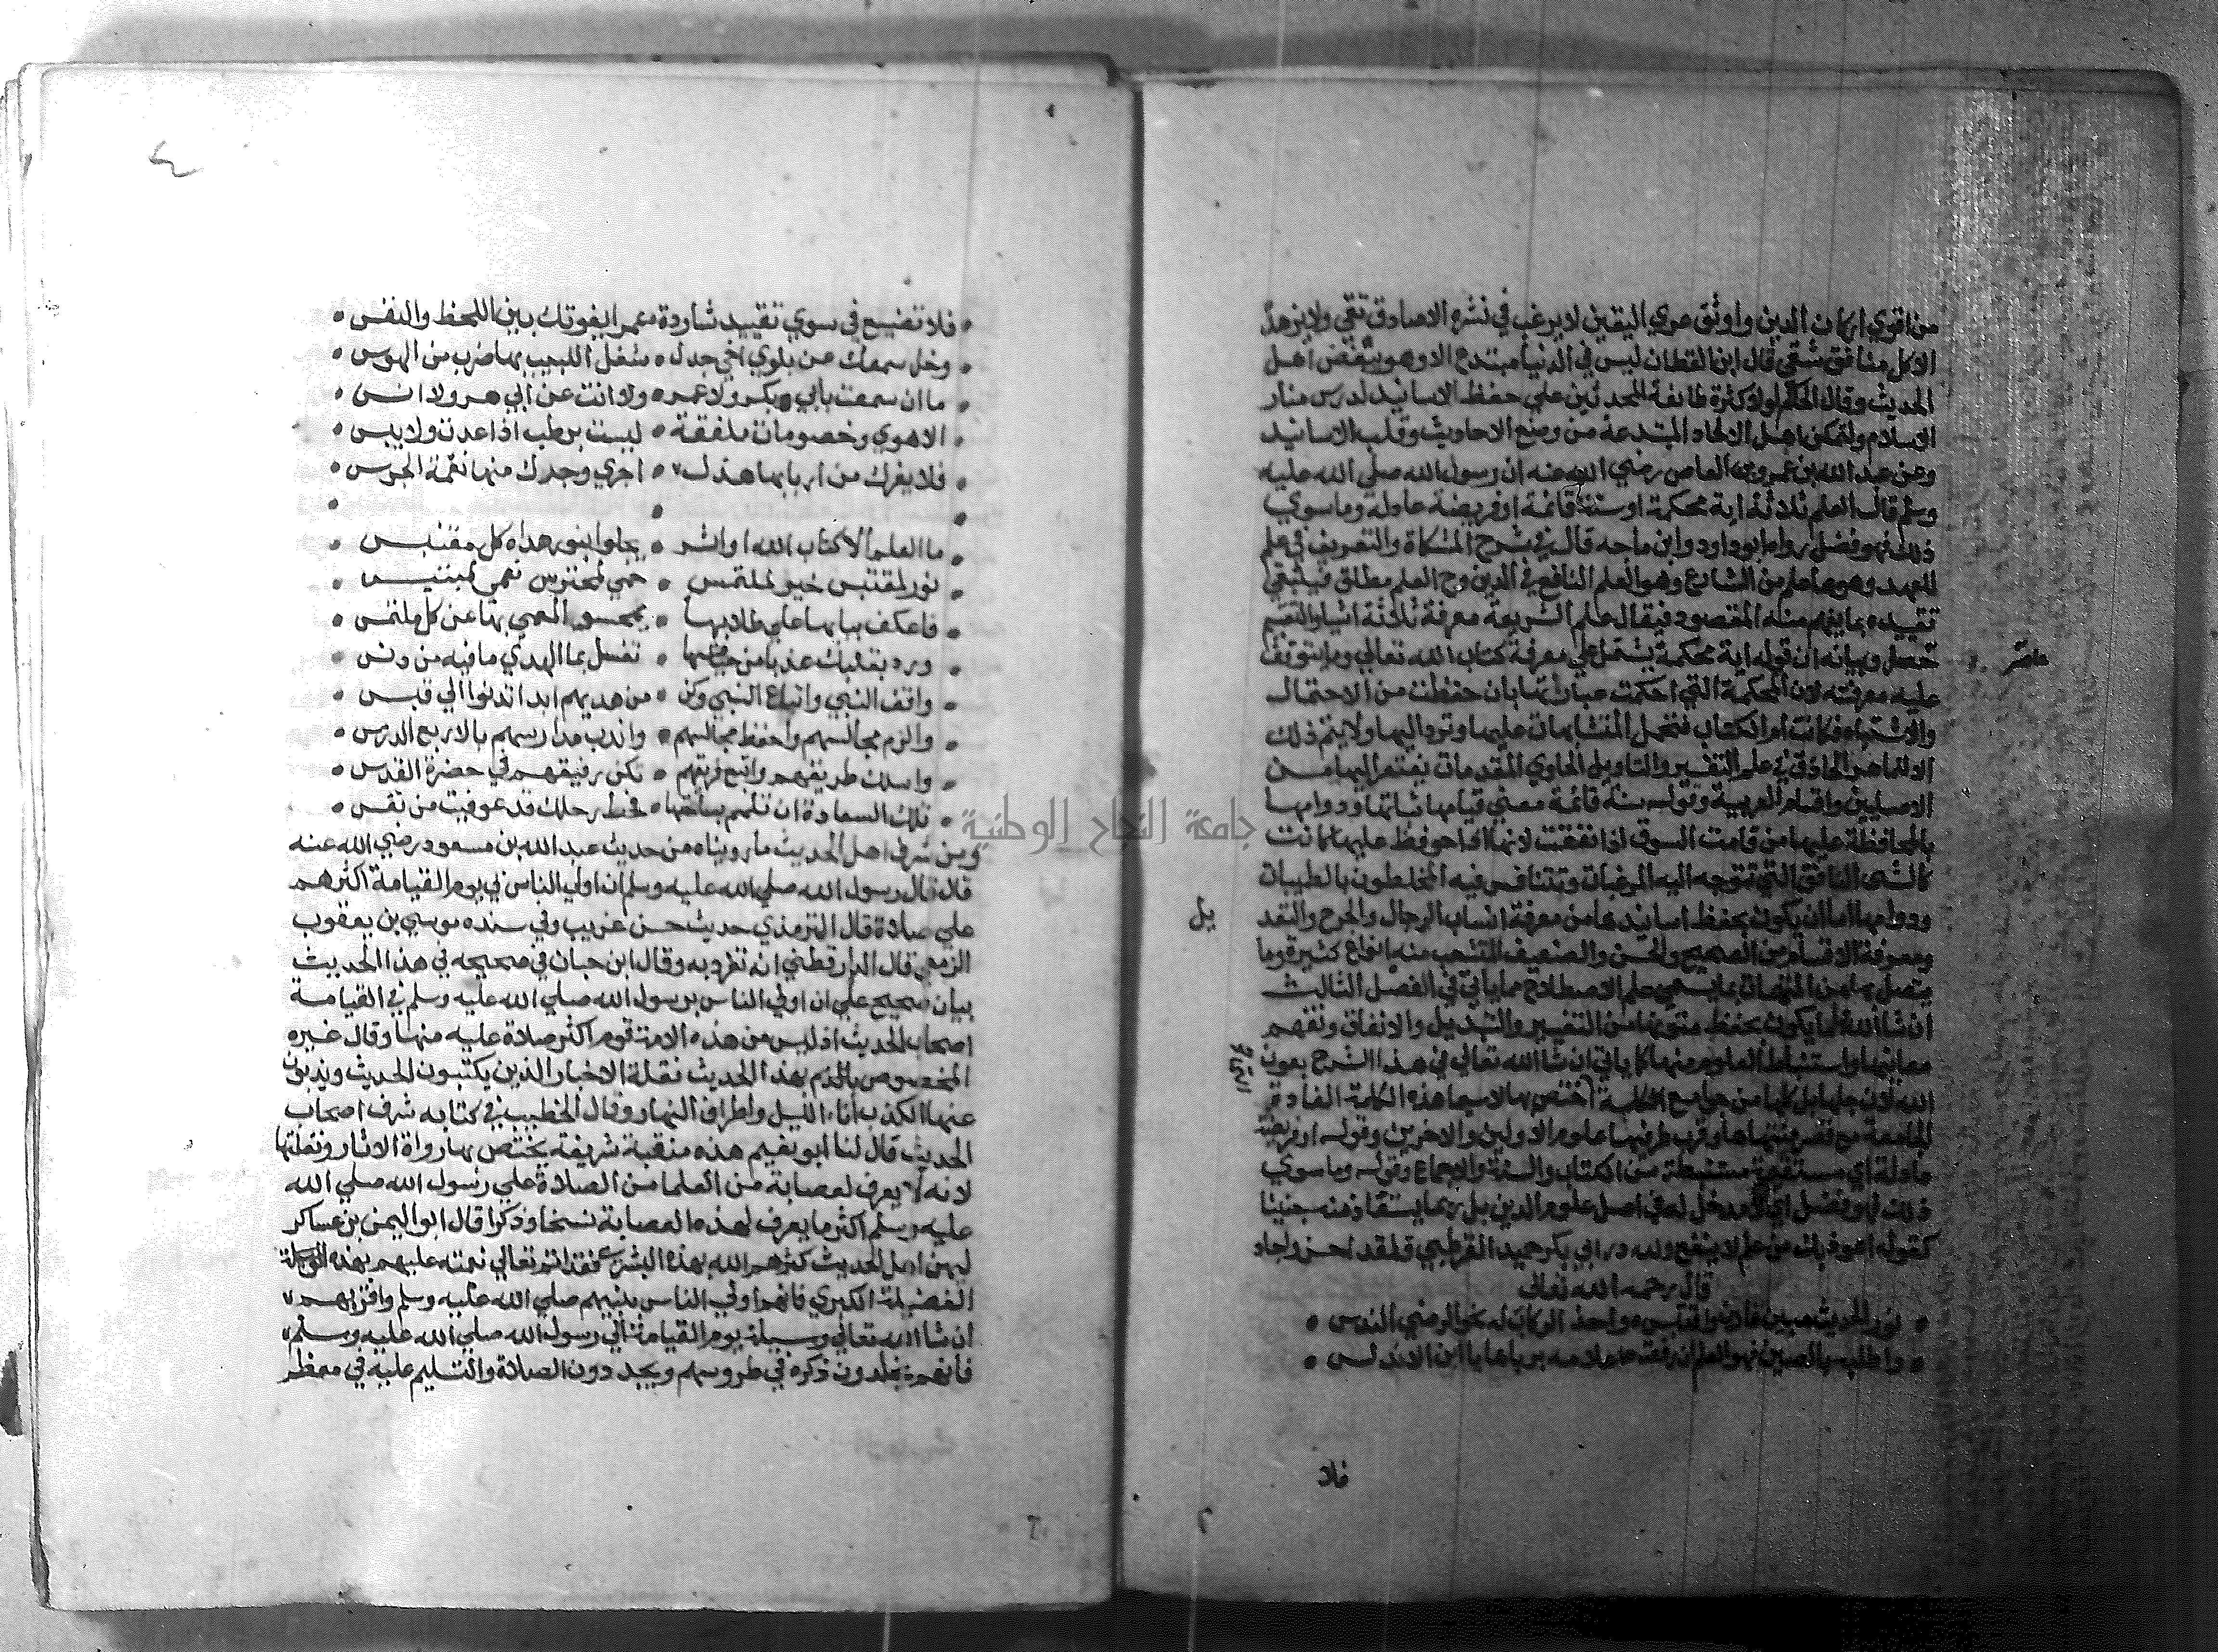 من اقوي اركان الدين واوثق عري اليقين لا يرغب في نشره الا صادق تقي ولا يزهد
الا كل منافق شقي قال ابن القطان ليس في الدنيا مبتدع الا وهو يبغض اهل
الحديث وقال الحاكم لولا كثرة طائفة المحدثين علي حفظ الاسانيد لدرس منار
الاسلام ولتمكن اهل الالحاد المبتدعة من وضع الاحاديث وقلب الاسانيد
وعن عبد الله بن عمرو بن العاص رضي الله عنه ان رسول الله صلي الله عليه
وسلم قال العلم ثلاثة اية محكمة او سنة قائمة او فريضة عادلة وما سوي
ذلك فهو فضل رواه ابو داود وابن ماجه قال في شرح المشكاة والتعريف في علم
للعهد وهو ما علم من الشارع وهو العلم النافع في الدين وح العلم مطلق فينبغي
تقييده بما يفهم منه المقصود فيقال علم الشريعة معرفة ثلاثة اشيا والتقسيم
حاصر
تحصل وبيانه ان قوله اية محكمة يشتمل علي معرفة كتاب الله تعالي وما يتوقف
عليه معرفته لان المحكمة التي احكمت عبارتها بان حفظت من الاحتمال
والاشتباه فكانت ام الكتاب فتحمل المتشابهات عليها وترد اليها ولا يتم ذلك
الا للماهر الحاذق في علم التفسير والتاويل الحاوي المقدمات يفتقر اليها من
الاصلين واقسام العربية وقوله سنة قائمة معني قيامها ثباتها ودوامها
بالمحافظة عليها من قامت السوق اذا نفقت لانها اذا حوفظ عليها كانت
كالشي النافق التي تتوجه اليه الرغبات وتتنافس فيه المخلصون بالطيبات
ودوامها اما ان يكون بحفظ اسانيدها من معرفة انساب الرجال والجرح والتعد
يل
ومعرفة الاقسام من الصحيح والحسن والضعيف المتشعب منه انواع كثيرة وما
يتصل بها من المتممات مما يسمي علم الاصطلاح مما ياتي في الفصل الثالث
ان شا الله واما يكون بحفظ متونها من التغيير والتبديل والاتقان وتفهم
معانيها واستنباط العلوم منها كما ياتي ان شا الله تعالي في هذا الشرح بعون
الله لان جلها بل كلها من جوامع الكلمة اختص بها لا سيما هذه الكلمة الفاذة
الجامعة مع قصر متنها وقرب طرفيها علوم الاولين والاخرين وقوله او فريضة
عادلة اي مستقيمة مستنبطة من الكتاب والسنة والاجماع وقوله وما سوي
ذلك فهو فضل اي لا مدخل له في اصل علوم الدين بل ربما يستعاذ منه حينئا
كقوله اعوذ بك من علم لا ينفع ولله در ابي بكر حميد القرطبي فلقد احسن واجاد
قال رحمه الله تعالي
نور الحديث مبين فادن واقتبس • واحد الركاب له نحو الرضي الندس •
واطلبه بالصين فهو العلم ان رفعت • اعلامه برباها يا ابن الاندلس •
فلا
٤
• فلا تضيع في سوي تقييد شاردة • عمرا يفوتك بين اللحظ والنفس •
• وخل سمعك عن بلوي اخي جدل • شغل اللبيب بها ضرب من الهوس •
• ما ان سمت بابي بكر ولا عمر • ولا اتت عن ابي هر ولا انس •
• الا هوي وخصومات ملفقة • ليست برطب اذا عدت ولا يبس •
• فلا يغرك من اربابها هذر • اجدي وجدك منها نغمة الجرس •
• ما العلم الا كتاب الله او اثر • يجلو بنور هداه كل مقتبس •
• نور لمقتبس خير لملتمس • حمي لمحترس نعمي لمبتئس •
• فاعكف ببابهما علي طلابهما • يمحو العمي بها عن كل ملتمس •
• ورد بقلبك عذبا من حياضهما • تغسل بما الهدي ما فيه من دنس •
• واقف النبي واتباع النبي وكن • من هديهم ابدا تدنوا الي قبس •
• والزم مجالسهم واحفظ مجالسهم • واندب مدارسهم بالاربع الدرس •
• واسلك طريقهم واتبع فريقهم • تكن رفيقهم في حضرة القدس •
• تلك السعادة ان تلمم بساحتها • فحط رحلك قد عوفيت من تعس •
ومن شرف اهل الحديث ما رويناه من حديث عبد الله بن مسعود رضي الله عنه
قال قال رسول الله صلي الله عليه وسلم ان اولي الناس بي يوم القيامة اكثرهم
علي صلاة قال الترمذي حديث حسن غريب وفي سنده موسي بن يعقوب
الزمعي قال الدارقطني انه تفرد به وقال ابن حبان في صحيحه في هذا الحديث
بيان صحيح علي ان اولي الناس برسول الله صلي الله عليه وسلم في القيامة
اصحاب الحديث اذ ليس من هذه الامة قوم اكثر صلاة عليه منها وقال غيره
المخصوص بهذا الحديث نقلة الاخبار الذين يكتبون الحديث ويذبون
عنها الكذب اناء الليل واطراف النهار وقال الخطيب في كتابه شرف اصحاب
الحديث قال لنا ابو نعيم هذه منقبة شريفة يختص بها رواة الاثار ونقلتها
لانه لا يعرف لعصابة من العلما من الصلاة علي رسول الله صلي الله
عليه وسلم اكثر ما يعرف لهذه العصابة نسخا وذكرا قال ابو اليمن بن عساكر
ليهن اهل الحديث كثرهم الله بهذه البشري فقد اتم تعالي نعمته عليهم بهذه
الفضيلة الكبري فانهم اولي الناس بنبيهم صلي الله عليه وسلم واقربهم
ان شا الله تعالي وسيلة يوم القيامة الي رسول الله صلي الله عليه وسلم
فانهم يخلدون ذكره في طروسهم ويجددون الصلاة والتسليم عليه في معظم
جامعة النجاح الوطنية